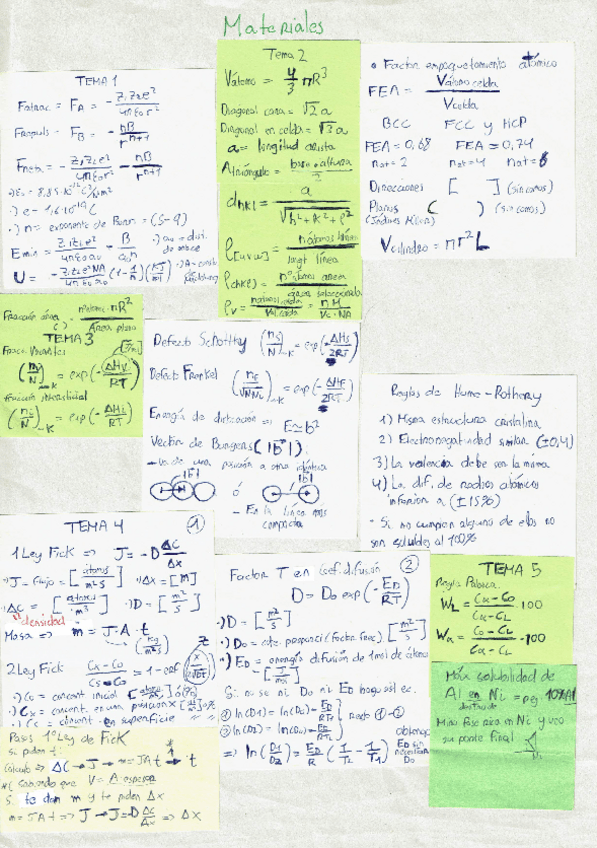 Materiales
TEMA 1
Fatrac = FA = - Z1Z2e² / 4πε0r²
Frepuls = FB = - nB / rⁿ⁺¹
Fneta = - Z1Z2e² / 4πε0r² - nB / rⁿ⁺¹
·) e = 1,6·10⁻¹⁹ C
·) n = exponente de Born = (5-9)
Emin = Z1Z2e² / 4πε0a0 - B / a0ⁿ
U = - Z1Z2e²NA / 4πε0a0 (1 - 1/n)
Tema 2
Vátomo = 4/3 πR³
Diagonal cara = √2 a
Diagonal en celda = √3 a
a = longitud arista
Atriángulo = base · altura / 2
dhkl = a / √h² + k² + l²
ρ[uvw] = nátomos / longt línea
ρ(hkl) = nátomos área / área seleccionada
ρv = nátomos celda / Vcelda = n.M / Vc · NA
• Factor empaquetamiento atómico
FEA = Vátomo celda / Vcelda
BCC FCC y HCP
FEA = 0,68 FEA = 0,74
nat = 2 nat = 4 nat = 6
Direcciones [ ] (sin comas)
Planos ( ) (sin comas)
(Índices Miller)
Vcilindro = πr²L
Fracción área nátomos · πR² / Área plano
TEMA 3
Fracc. Vacantes
(nv/N) = exp(- ΔHv/RT)
Fracción intersticial
(ni/N) = exp(- ΔHi/RT)
Defecto Schottky (ns/N) = exp(- ΔHs/2RT)
Defecto Frenkel (nf/√NN) = exp(- ΔHf/2RT)
Energía de dislocación => E≈b²
Vector de Burgers (|b|)
- Va de una posición a otra idéntica
|b| ó |b|
- En la línea más
compacta
Reglas de Hume-Rothery
1) Misma estructura cristalina
2) Electronegatividad similar (±0,4)
3) La valencia debe ser la misma
4) La dif. de radios atómicos
inferior a (±15%)
- Si no cumplen alguno de ellos no
son solubles al 100%
TEMA 4 1
1 Ley Fick => J = -D ΔC/Δx
·) J = Flujo = [átomos / m²s] ·) Δx = [m]
·) ΔC = [átomos / m³] ·) D = [m²/s]
"densidad
Masa => m = J·A·t
2 Ley Fick: Cx - C0 / Cs - C0 = 1 - erf (x / 2√Dt)
Z
·) C0 = concent. inicial
·) Cx = concent. en una posición x
·) Cs = concent. en superficie
Pasos 1ª Ley de Fick
Si piden t:
Cálculo => ΔC → J → m = JAt → t
*( sabiendo que V = A·espesor
Si te dan m y te piden Δx
m = JAt => J → J = D ΔC/Δx => Δx
Factor T en Coef. difusión 2
D = D0 exp(- ED/RT)
·) D = [m²/s]
·) D0 = cte. proporci (factor frec) [m²/s]
·) ED = energía difusión de 1 mol de átomo
- [J/mol]
Si no se ni D0 ni ED hago sist ec.
1 ln(D1) = ln(D0) - ED/RT1
2 ln(D2) = ln(D0) - ED/RT2
resto 1 - 2
=> ln(D1/D2) = ED/R (1/T2 - 1/T1)
obtengo
ED sin
necesitar
D0
TEMA 5
Regla Palanca.
WL = Cα - C0 / Cα - CL · 100
Wα = C0 - CL / Cα - CL · 100
Máx solubilidad de
Al en Ni = pej 10% Al
dentro de
Miro fase rica en Ni y veo
su punto final